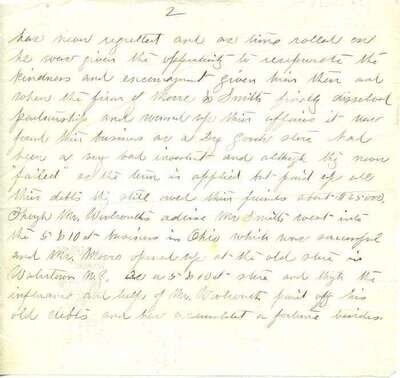 2
has never regretted and as time rolled on
he was given the oppertunity to recipreate the
kindness and encouragment given him then and
when the firm of Moore & Smith finally dissolved
partnership and wound up their affairs it was
found their business as a Dry Goods store had
been a very bad investment and although they never
"failed" as the term is applied but paid off all
their debts they still owed their friends about $25000.
Through Mr. Woolworth's advise Mr Smith went into
the 5 & 10 ct business in Ohio which was successful
and Mr. Moore opened up at the old store in
Watertown N.Y. as a 5 & 10 ct store and through the
influence and help of Mr. Woolworth paid off his
old debts and has accumulated a fortune besides.